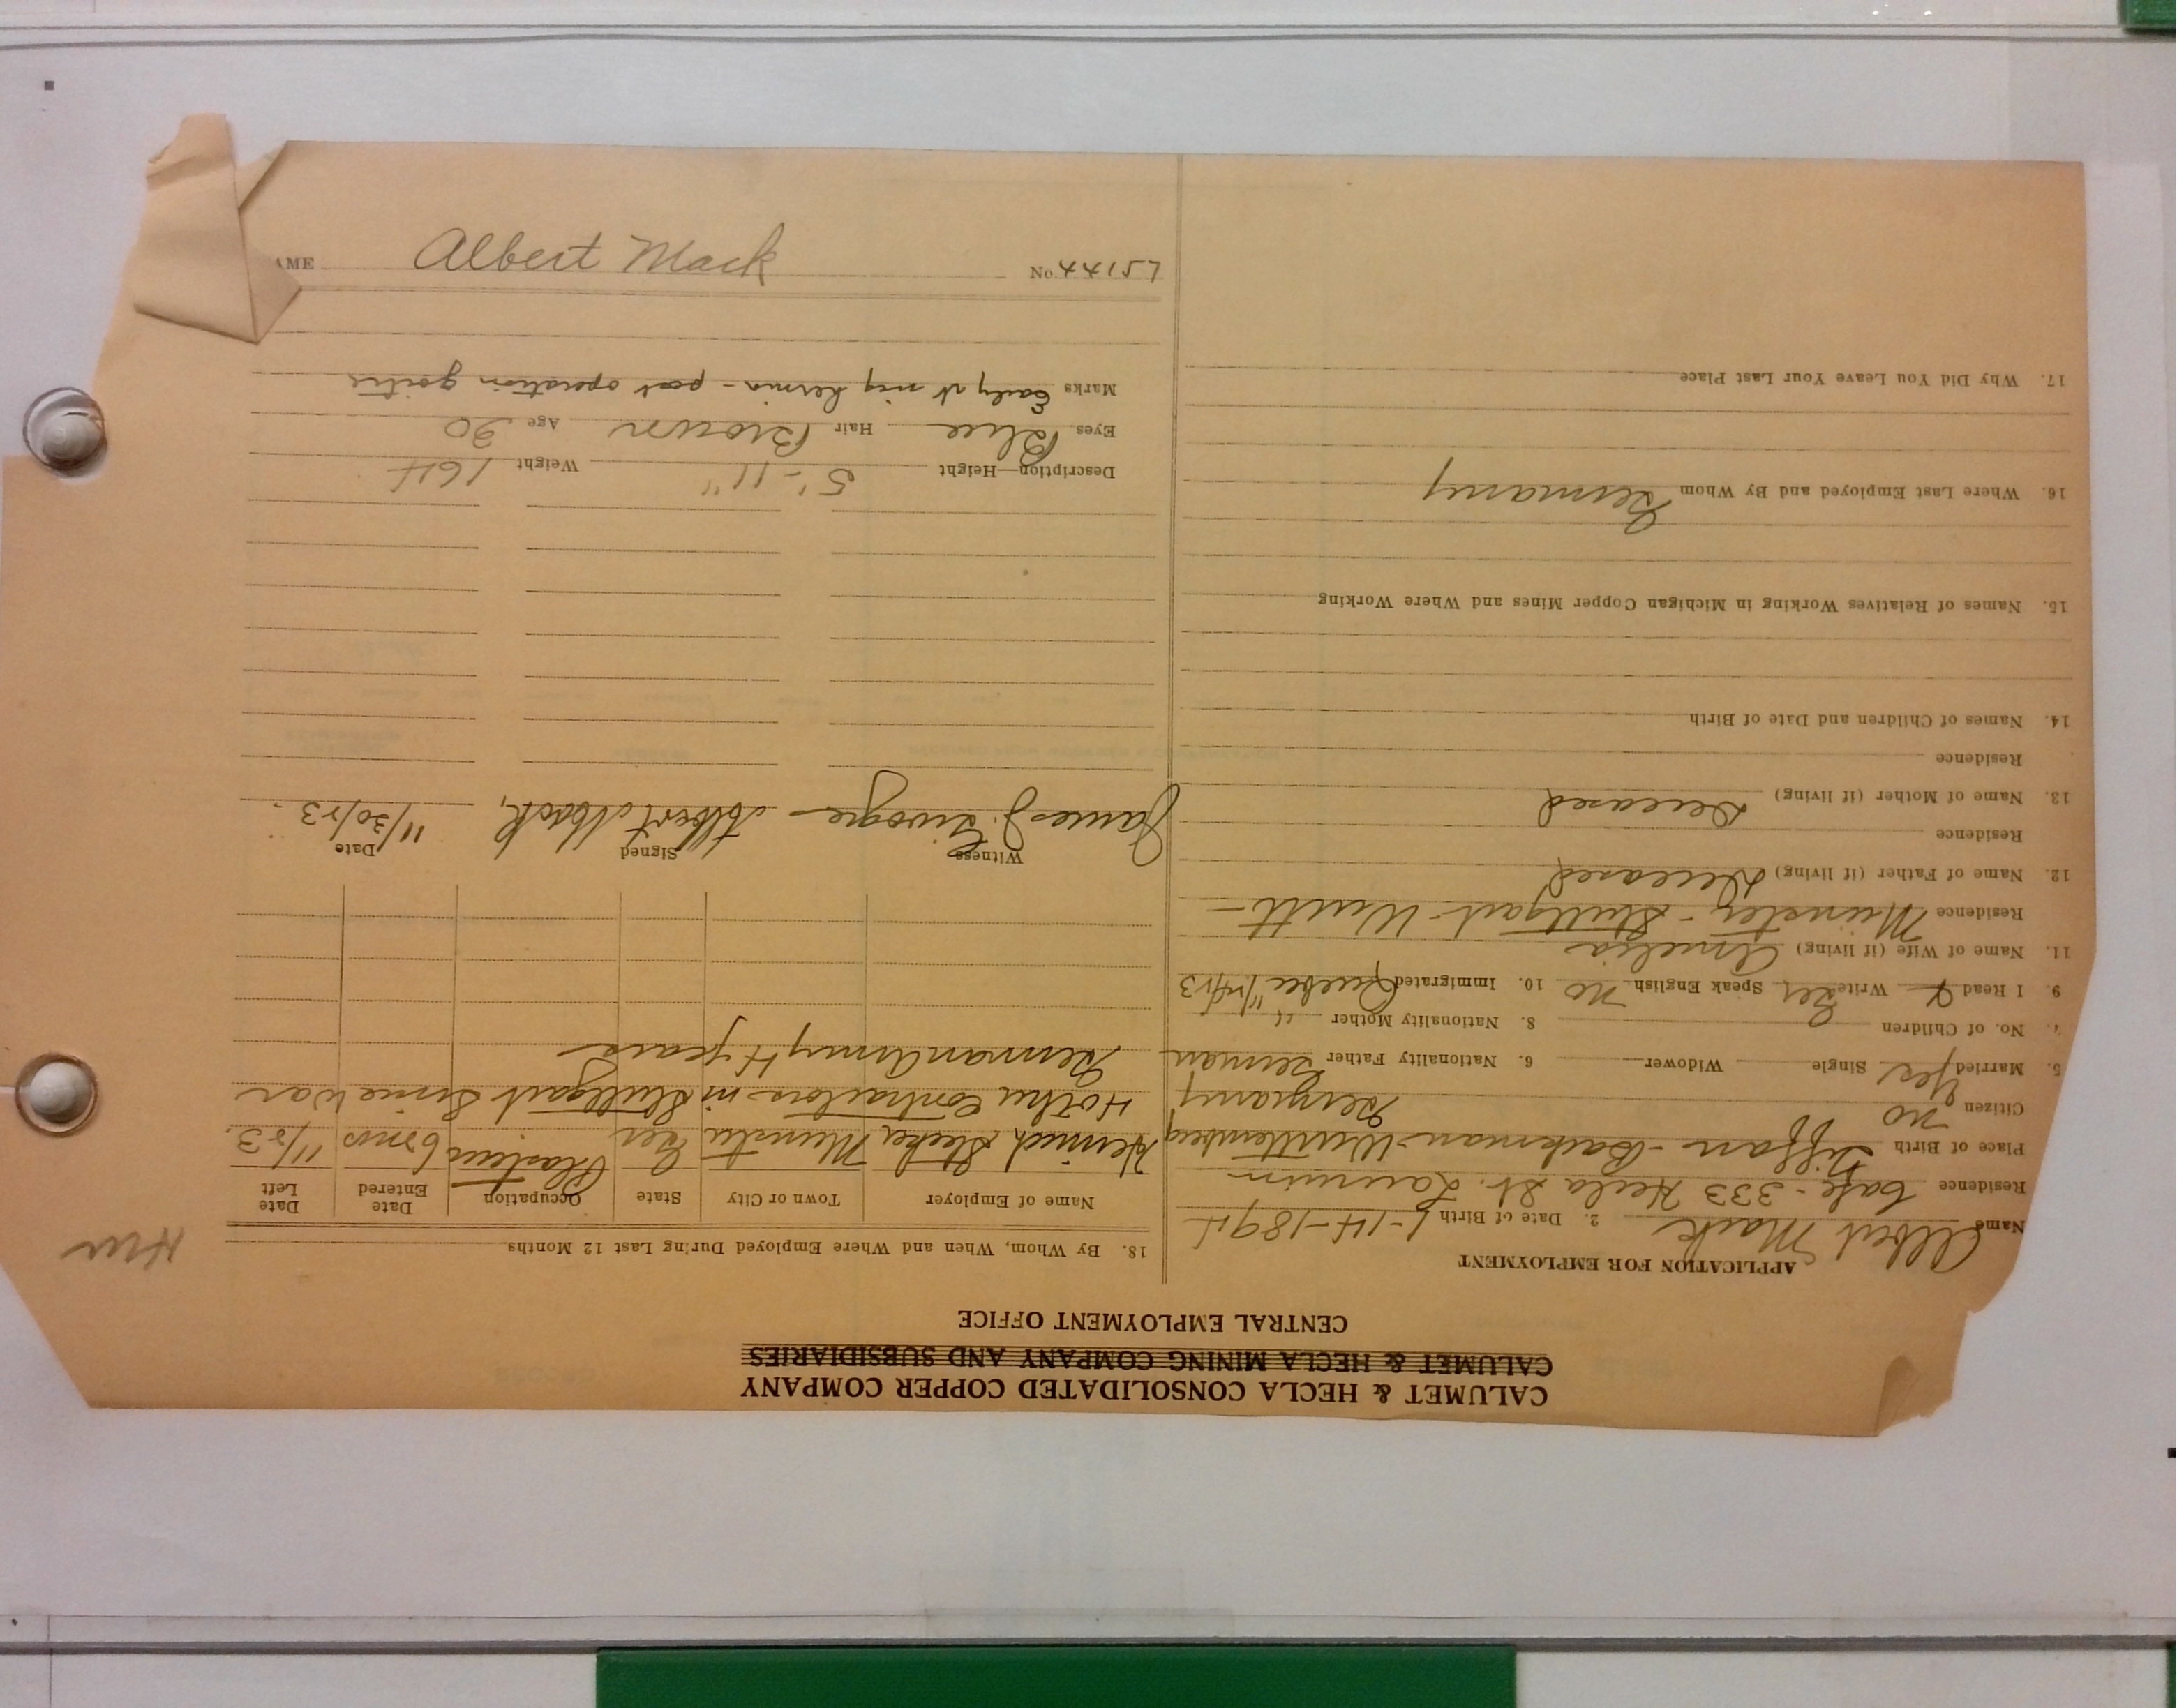 CALUMET & HECLA CONSOLIDATED COPPER COMPANY
CALUMET & HECLA MINING COMPANY AND SUBSIDIARIES
CENTRAL EMPLOYMENT OFFICE
APPLICATION FOR EMPLOYMENT
Name Albert Mack 2. Date of Birth 1-14-1894
Residence Cafe - 333 Hecla St. Laurium
Place of Birth - Backnan - Württemberg
Citizen no Germany
5. Married Yes Single Widower 6. Nationality Father German
7. No. of Children 8. Nationality Mother "
9. I Read & Write Ger Speak English no 10. Immigrated Quebec
11. Name of Wife (if living) Amelia
Residence Münster - Stuttgart - Wurtt -
12. Name of Father (if living) Deceased
Residence
13. Name of Mother (if living) Deceased
Residence
14. Names of Children and Date of Birth
15. Names of Relatives Working in Michigan Copper Mines and Where Working
16. Where Last Employed and By Whom Germany
17. Why Did You Leave Your Last Place
18. By Whom, When and Where Employed During Last 12 Months
Name of Employer Town or City State Occupation Date Entered Date Left
Heinrich Munster Ger 6 mos 11/23.
Contractors in Stuttgart Since War
German Army 4 years
Witness Signed Date
James J. Albert Mack, 11/30/23.
Description—Height 5'-11" Weight 164
Eyes Blue Hair Brown Age 30
Marks Early rt ing hernia - post operation goitre
AME Albert Mack No 44157